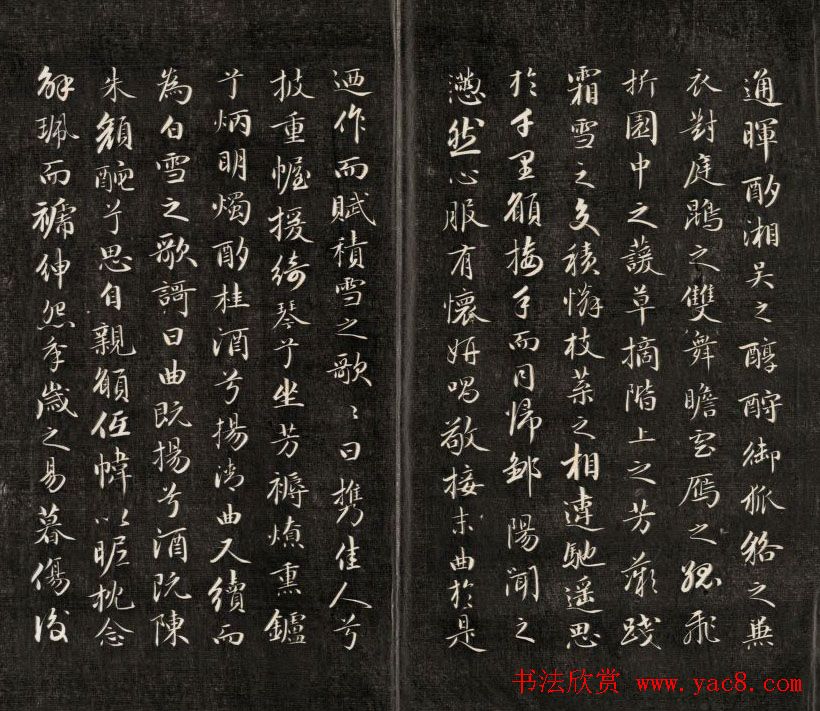 通暉酌湘吳之醇酎御狐貉之兼
衣對庭鵾之雙舞瞻雲鴈之孤飛
折園中之蘐草摘階上之芳薇踐
霜雪之交積憐枝葉之相違馳遥思
於千里願接手而同歸鄒陽聞之
懣然心服有懷妍唱敬接末曲於是
迺作而賦積雪之歌〻曰攜佳人兮
披重幄援綺琴兮坐芳褥燎熏鑪
兮炳明燭酌桂酒兮揚清曲又續而
為白雪之歌謌曰曲既揚兮酒既陳
朱顏酡兮思自親願低幃以昵枕念
解珮而褫紳怨年歲之易暮傷後
书法欣赏 www.yac8.com